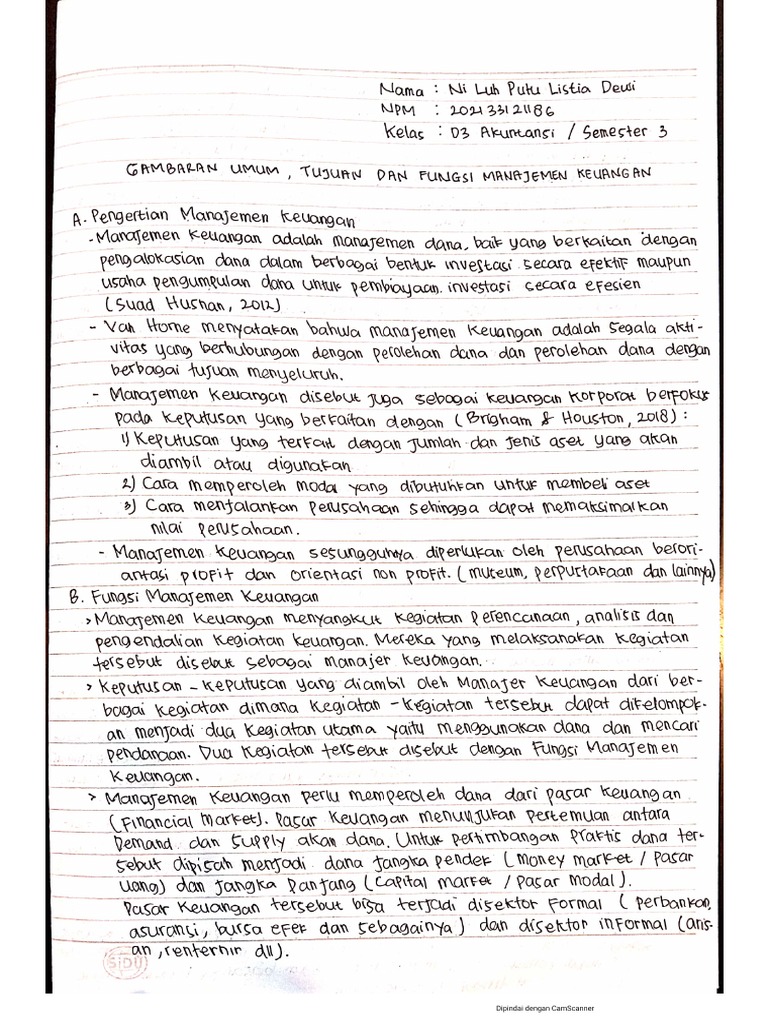 Nama : Ni Luh Putu Listia Dewi
NPM : 202133121186
Kelas : D3 Akuntansi / Semester 3
GAMBARAN UMUM, TUJUAN DAN FUNGSI MANAJEMEN KEUANGAN
A. Pengertian Manajemen Keuangan
- Manajemen Keuangan adalah manajemen dana, baik yang berkaitan dengan
pengalokasian dana dalam berbagai bentuk investasi secara efektif maupun
usaha pengumpulan dana untuk pembiayaan investasi secara efesien
(Suad Husnan, 2012)
- Van Horne menyatakan bahwa manajemen Keuangan adalah segala akti-
vitas yang berhubungan dengan perolehan dana dan perolehan dana dengan
berbagai tujuan menyeluruh.
- Manajemen Keuangan disebut juga sebagai Keuangan Korporat berfokus
pada Keputusan yang berkaitan dengan (Brigham & Houston, 2018) :
1) Keputusan yang terkait dengan jumlah dan jenis aset yang akan
diambil atau digunakan
2) Cara memperoleh modal yang dibutuhkan untuk membeli aset
3) Cara menjalankan perusahaan sehingga dapat memaksimalkan
nilai perusahaan.
- Manajemen Keuangan sesungguhnya diperlukan oleh perusahaan berori-
antasi profit dan orientasi non profit. (museum, perpustakaan dan lainnya)
B. Fungsi Manajemen Keuangan
> Manajemen Keuangan menyangkut kegiatan perencanaan, analisis dan
pengendalian kegiatan keuangan. Mereka yang melaksanakan kegiatan
tersebut disebut sebagai manajer Keuangan.
> Keputusan - Keputusan yang diambil oleh Manajer Keuangan dari ber-
bagai kegiatan dimana kegiatan - kegiatan tersebut dapat dikelompok-
an menjadi dua kegiatan utama yaitu menggunakan dana dan mencari
pendanaan. Dua kegiatan tersebut disebut dengan Fungsi Manajemen
Keuangan.
> Manajemen Keuangan perlu memperoleh dana dari pasar Keuangan
(Financial Market). Pasar Keuangan menunjukan pertemuan antara
Demand dan Supply akan dana. Untuk pertimbangan praktis dana ter-
sebut dipisah menjadi dana jangka pendek (money market / pasar
uang) dan jangka Panjang (Capital market / Pasar Modal).
Pasar Keuangan tersebut bisa terjadi disektor Formal (perbankan,
asuransi, bursa efek dan sebagainya) dan disektor informal (aris-
an, renternir dll).
SiDU
Dipindai dengan CamScanner